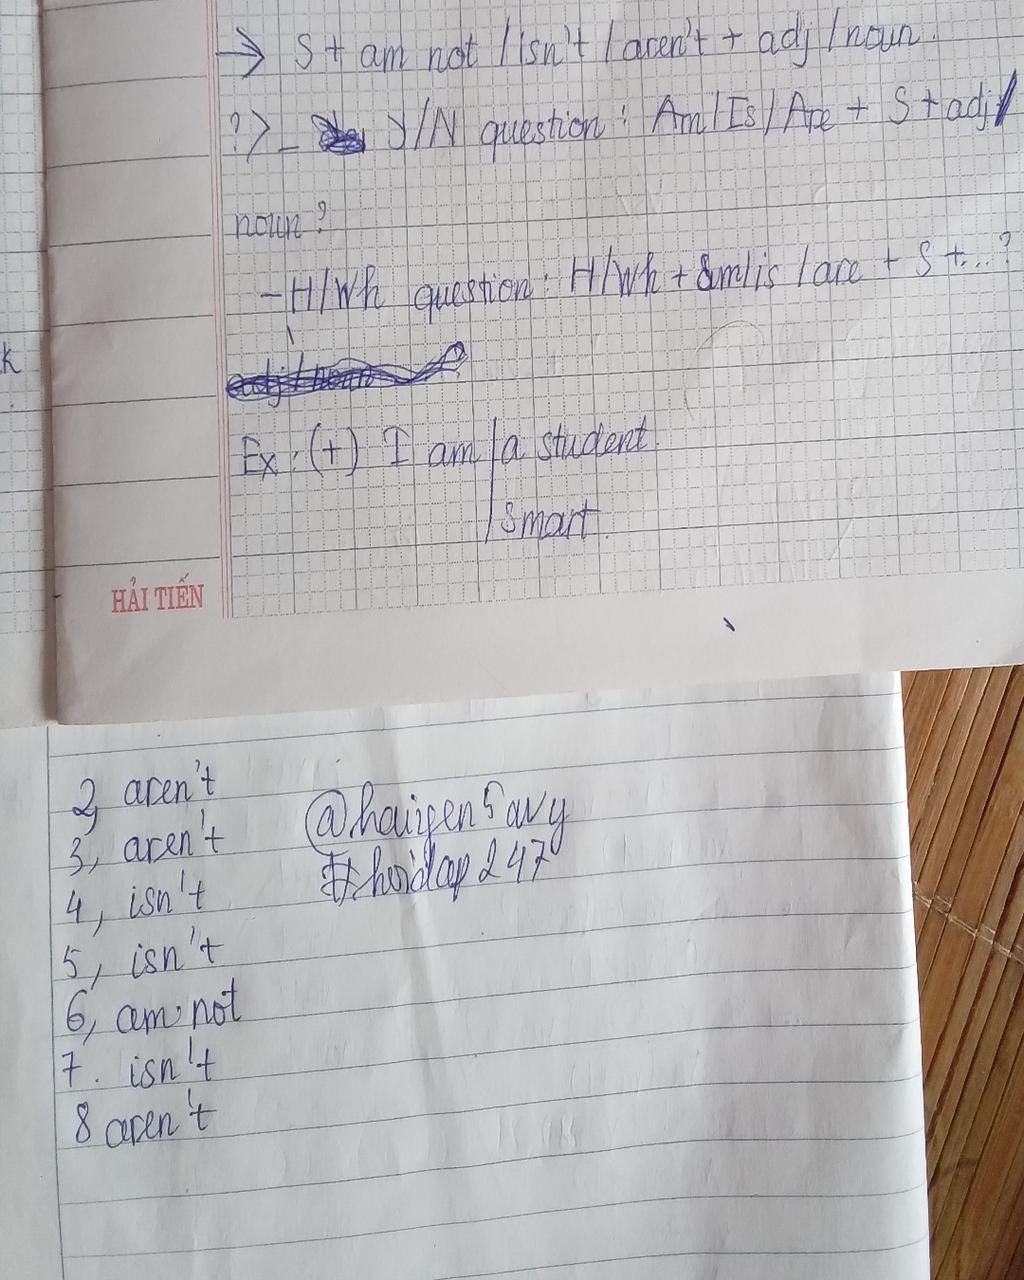 → S + am not / isn't / aren't + adj / noun.
?> - Y/N question : Am / Is / Are + S + adj /
noun ?
- H/Wh question : H/Wh + am / is / are + S + ... ?
k
Ex : (+) I am / a student.
/ smart.
HẢI TIẾN
2, aren't
@haiyen5avy
3, aren't
#hoidap247
4, isn't
5, isn't
6, am not
7. isn't
8 aren't